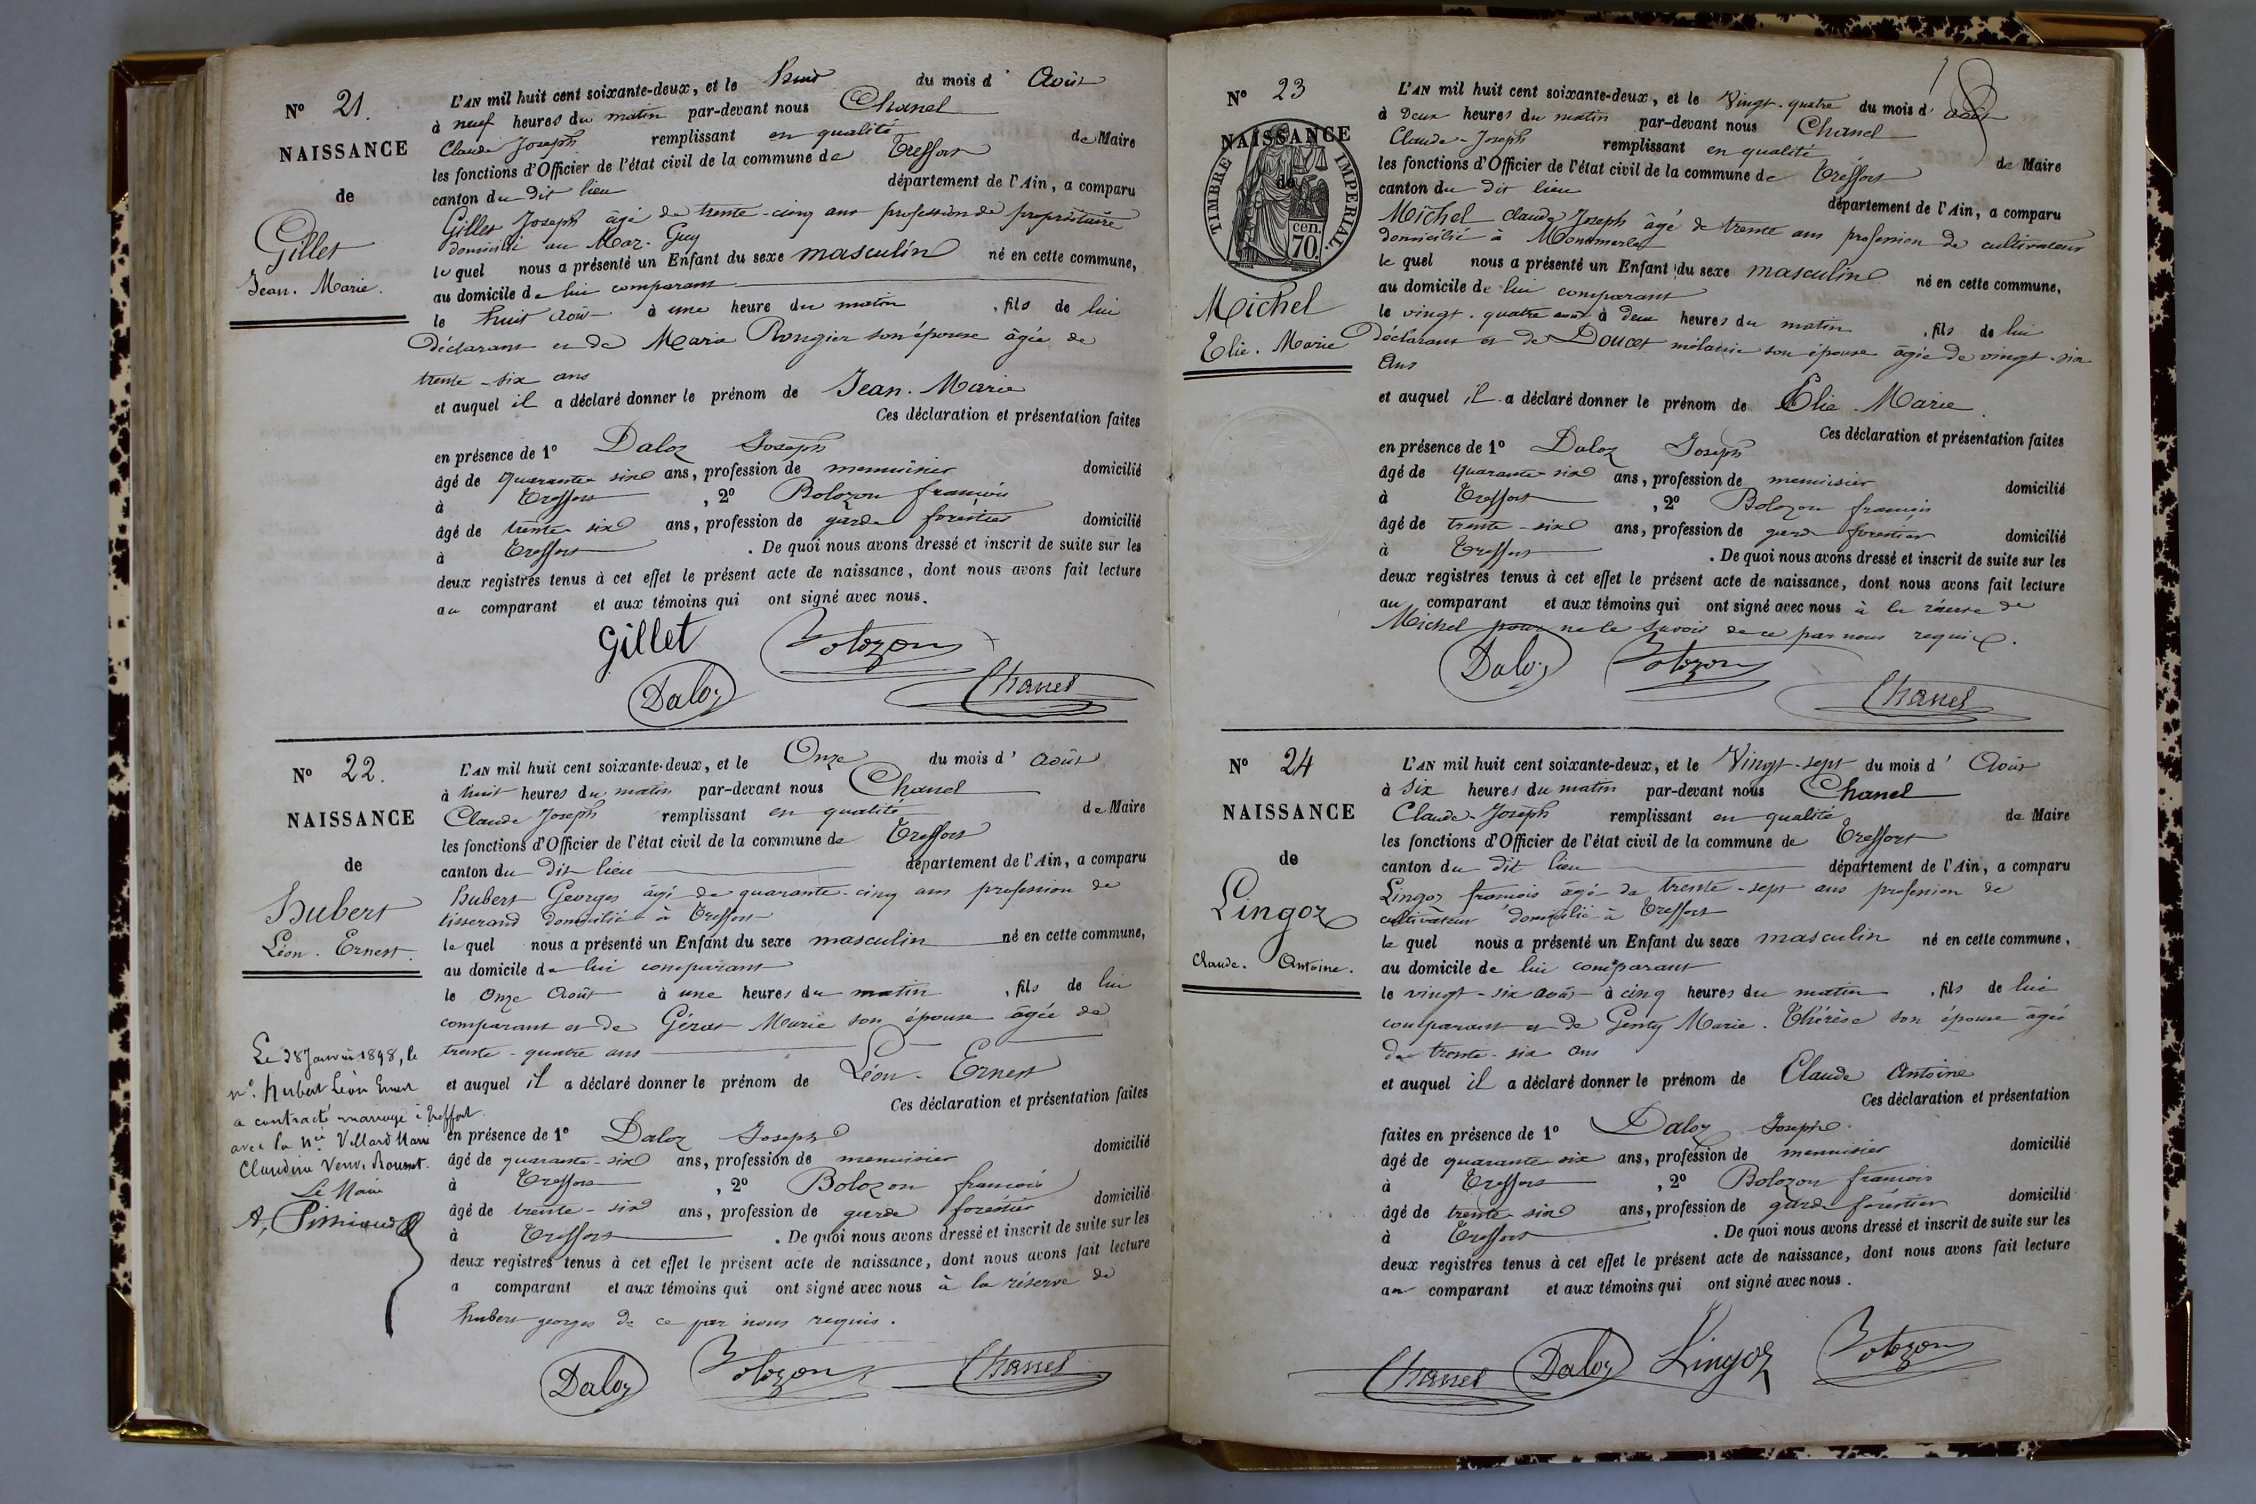 N° 21.
NAISSANCE
de
Gillet
Jean. Marie.
L'AN mil huit cent soixante-deux, et le huit du mois d' Août
à neuf heures du matin par-devant nous Chanel
Claude Joseph remplissant en qualité de Maire
les fonctions d'Officier de l'état civil de la commune de Treffort
canton du dit lieu département de l'Ain, a comparu
Gillet Joseph âgé de trente-cinq ans profession de propriétaire
domicilié au Mar. Guy
le quel nous a présenté un Enfant du sexe masculin né en cette commune,
au domicile de lui comparant
le huit août à une heure du matin, fils de lui
déclarant et de Marie Rongier son épouse âgée de
trente-six ans
et auquel il a déclaré donner le prénom de Jean. Marie
Ces déclaration et présentation faites
en présence de 1° Daloz Joseph
âgé de quarante six ans, profession de menuisier domicilié
à Treffort, 2° Bolozon françois
âgé de trente-six ans, profession de garde forestier domicilié
à Treffort. De quoi nous avons dressé et inscrit de suite sur les
deux registres tenus à cet effet le présent acte de naissance, dont nous avons fait lecture
au comparant et aux témoins qui ont signé avec nous.
Gillet Bolozon
Daloz Chanel
N° 22.
NAISSANCE
de
Hubert
Léon. Ernest.
L'AN mil huit cent soixante-deux, et le Onze du mois d' Août
à huit heures du matin par-devant nous Chanel
Claude Joseph remplissant en qualité de Maire
les fonctions d'Officier de l'état civil de la commune de Treffort
canton du dit lieu département de l'Ain, a comparu
hubert Georges âgé de quarante-cinq ans profession de
tisserand domicilié à Treffort
le quel nous a présenté un Enfant du sexe masculin né en cette commune,
au domicile de lui comparant
le Onze Août à une heures du matin, fils de lui
comparant et de Marie son épouse âgée de
trente-quatre ans
et auquel il a déclaré donner le prénom de Léon. Ernest
Ces déclaration et présentation faites
en présence de 1° Daloz Joseph
âgé de quarante-six ans, profession de menuisier domicilié
à Treffort, 2° Bolozon francois
âgé de trente-six ans, profession de garde forestier domicilié
à Treffort. De quoi nous avons dressé et inscrit de suite sur les
deux registres tenus à cet effet le présent acte de naissance, dont nous avons fait lecture
a comparant et aux témoins qui ont signé avec nous à la réserve de
hubert georges de ce par nous requis.
Daloz Bolozon Chanel
Le 28 Janvier 1898, le
né. Hubert Léon Ernest
a contracté mariage à Treffort
avec la née Villard Marie
Claudine Veuve Rousset.
Le Maire
N° 23
18
NAISSANCE
de
TIMBRE IMPERIAL.
cen.
70.
Michel
Elie. Marie
L'AN mil huit cent soixante-deux, et le Vingt-quatre du mois d' août
à Deux heures du matin par-devant nous Chanel
Claude-Joseph remplissant en qualité de Maire
les fonctions d'Officier de l'état civil de la commune de Treffort
canton du dit lieu département de l'Ain, a comparu
Michel claude Joseph âgé de trente ans profession de cultivateur
domicilié à Montmerle
le quel nous a présenté un Enfant du sexe masculin né en cette commune,
au domicile de lui comparant
le vingt-quatre août à deux heures du matin, fils de lui
déclarant et de Doucet mélanie son épouse âgée de vingt-six
Ans
et auquel il a déclaré donner le prénom de Elie Marie.
Ces déclaration et présentation faites
en présence de 1° Daloz Joseph
âgé de quarante six ans, profession de menuisier domicilié
à Treffort, 2° Bolozon francois
âgé de trente-six ans, profession de garde forestier domicilié
à Treffort. De quoi nous avons dressé et inscrit de suite sur les
deux registres tenus à cet effet le présent acte de naissance, dont nous avons fait lecture
au comparant et aux témoins qui ont signé avec nous à la réserve de
Michel pour ne le savoir de ce par nous requis.
Daloz Bolozon
Chanel
N° 24
NAISSANCE
de
Lingoz
Claude. Antoine.
L'AN mil huit cent soixante-deux, et le Vingt-sept du mois d' Août
à six heures du matin par-devant nous Chanel
Claude-Joseph remplissant en qualité de Maire
les fonctions d'Officier de l'état civil de la commune de Treffort
canton du dit lieu département de l'Ain, a comparu
Lingoz francois âgé de trente-sept ans profession de
cultivateur domicilié à Treffort
le quel nous a présenté un Enfant du sexe masculin né en cette commune,
au domicile de lui comparant
le vingt-six août à cinq heures du matin, fils de lui
comparant et de Genty Marie. Thérèse son épouse âgée
de trente-six ans
et auquel il a déclaré donner le prénom de Claude Antoine
Ces déclaration et présentation
faites en présence de 1° Daloz Joseph
âgé de quarante six ans, profession de menuisier domicilié
à Treffort, 2° Bolozon francois
âgé de trente six ans, profession de garde forestier domicilié
à Treffort. De quoi nous avons dressé et inscrit de suite sur les
deux registres tenus à cet effet le présent acte de naissance, dont nous avons fait lecture
au comparant et aux témoins qui ont signé avec nous.
Chanel Daloz Lingoz Bolozon